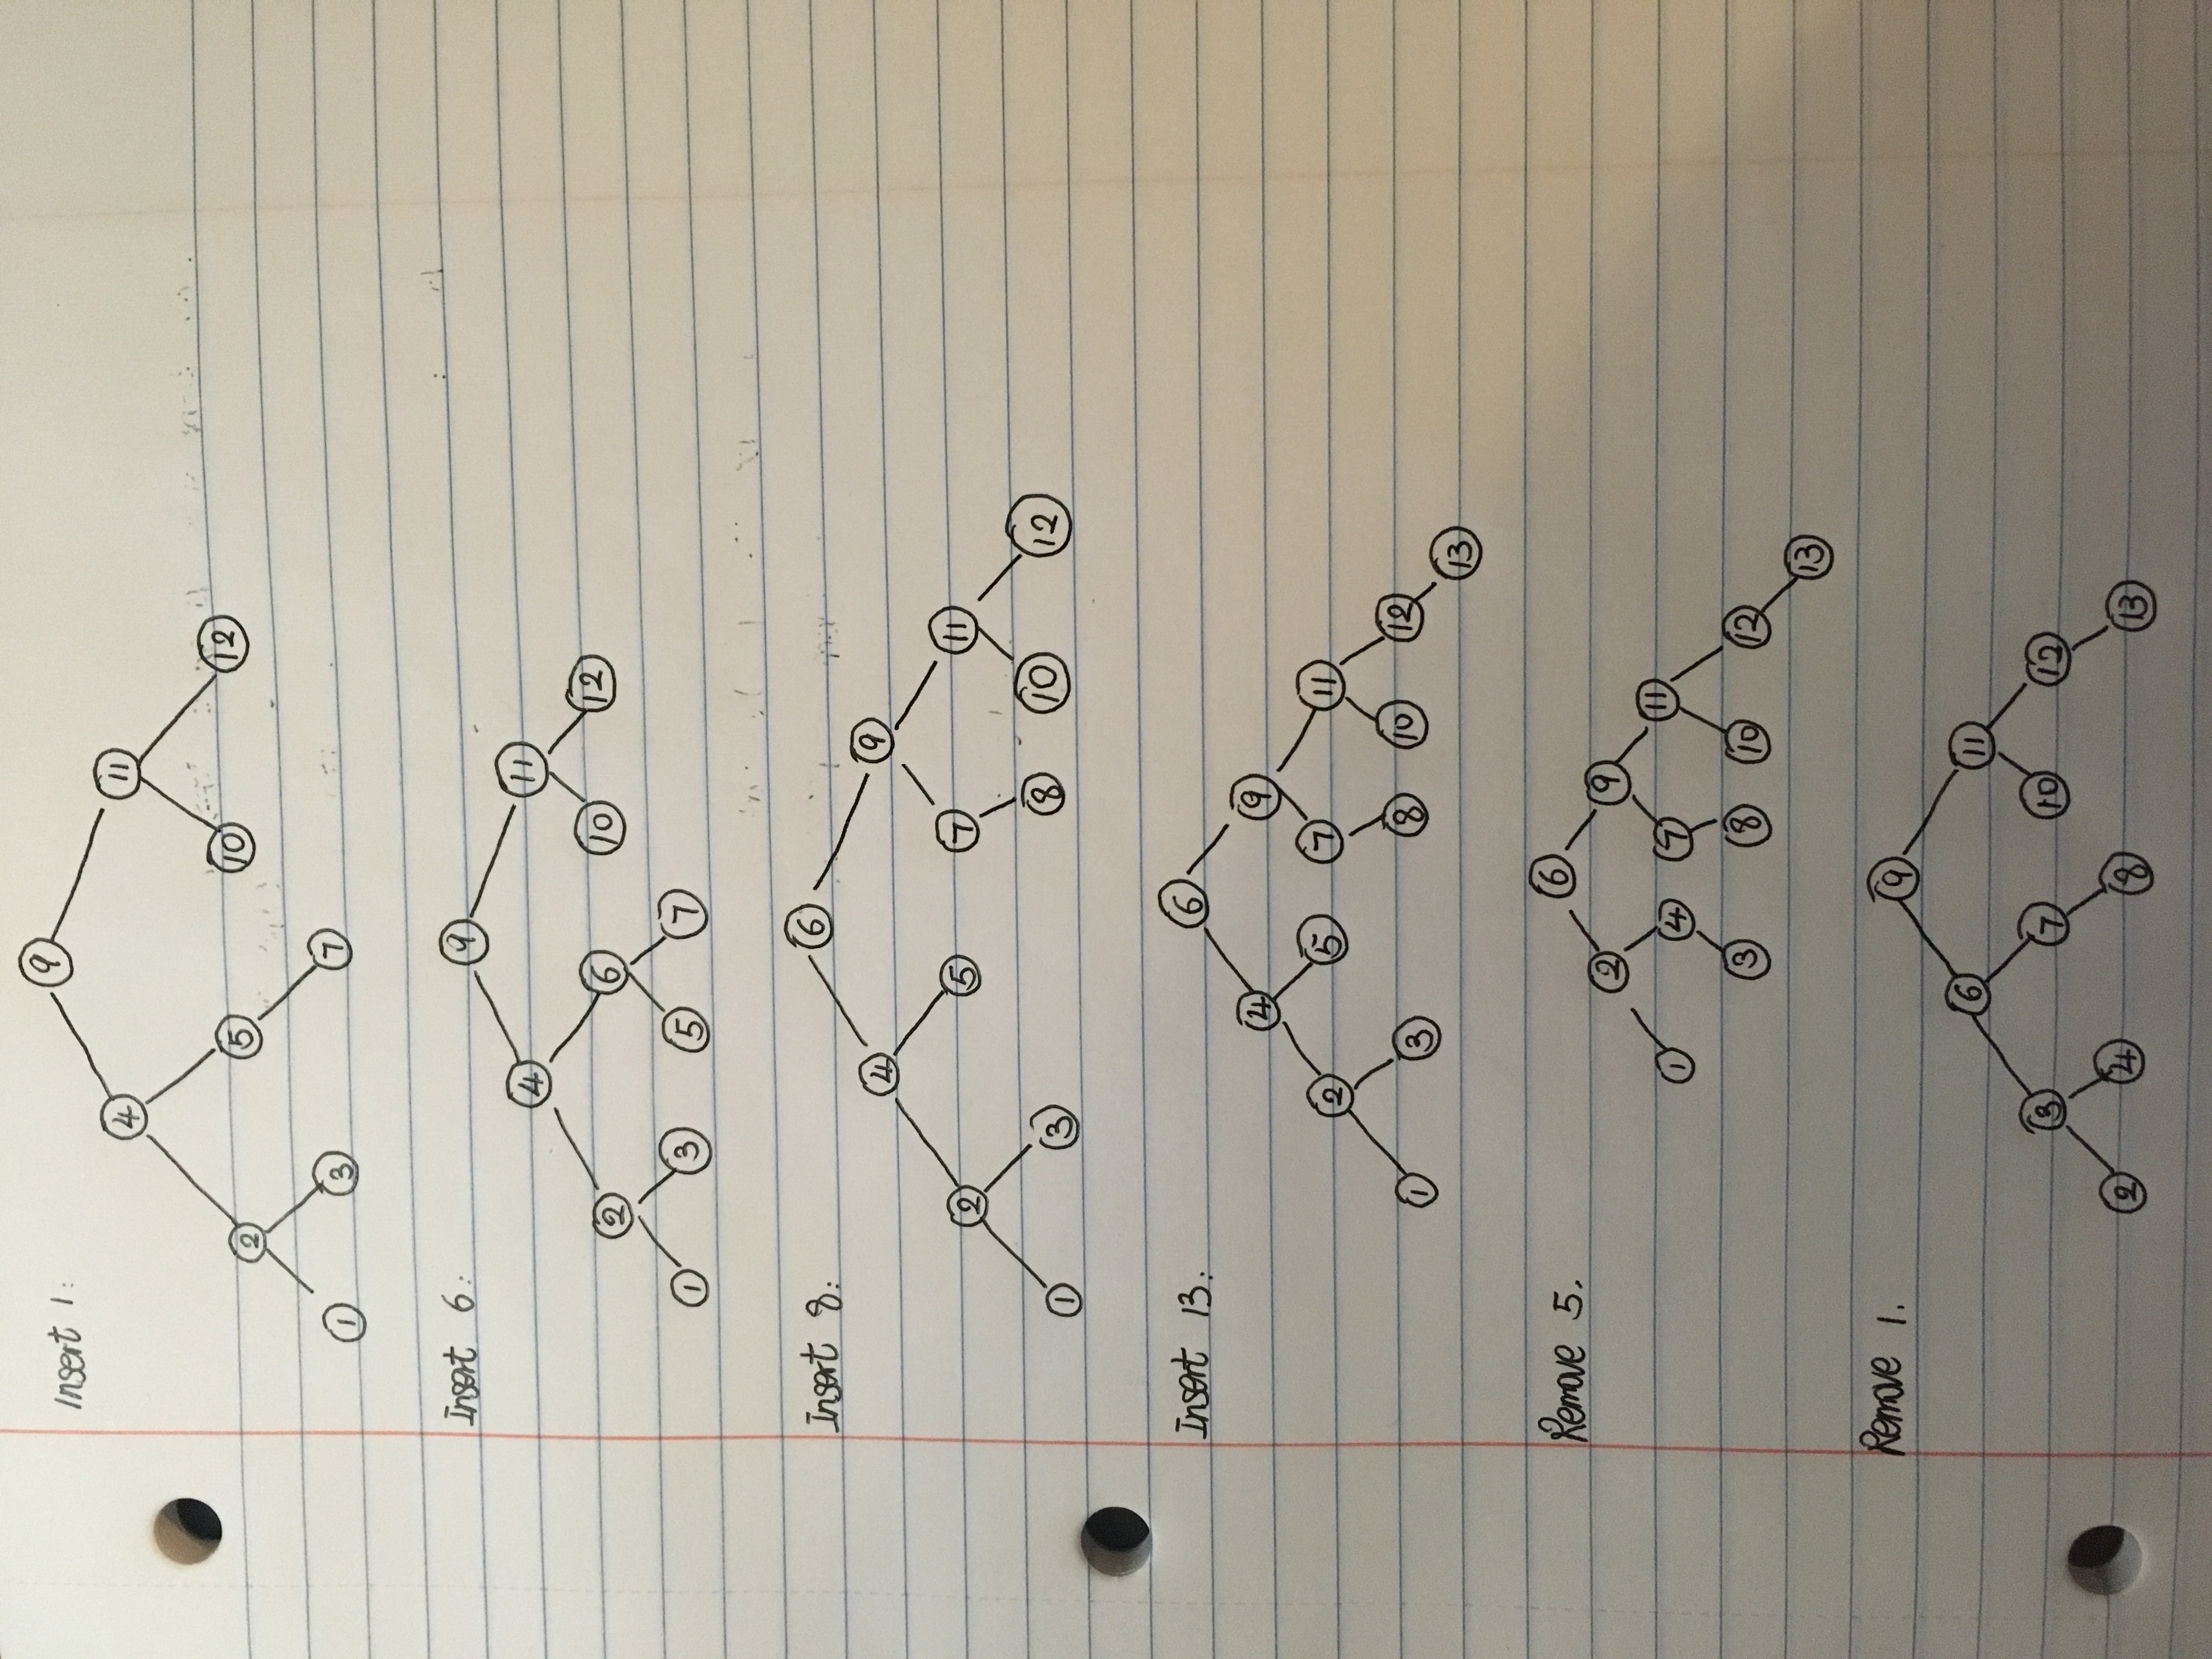 Insert 1:
9
4 11
2 5 10 12
1 3 7
Insert 6:
9
4 11
2 6 10 12
1 3 5 7
Insert 8:
6
4 9
2 5 7 11
1 3 8 10 12
Insert 13:
6
4 9
2 5 7 11
1 3 8 10 12
13
Remove 5.
6
2 9
1 4 7 11
3 8 10 12
13
Remove 1.
9
6 11
3 7 10 12
2 4 8 13